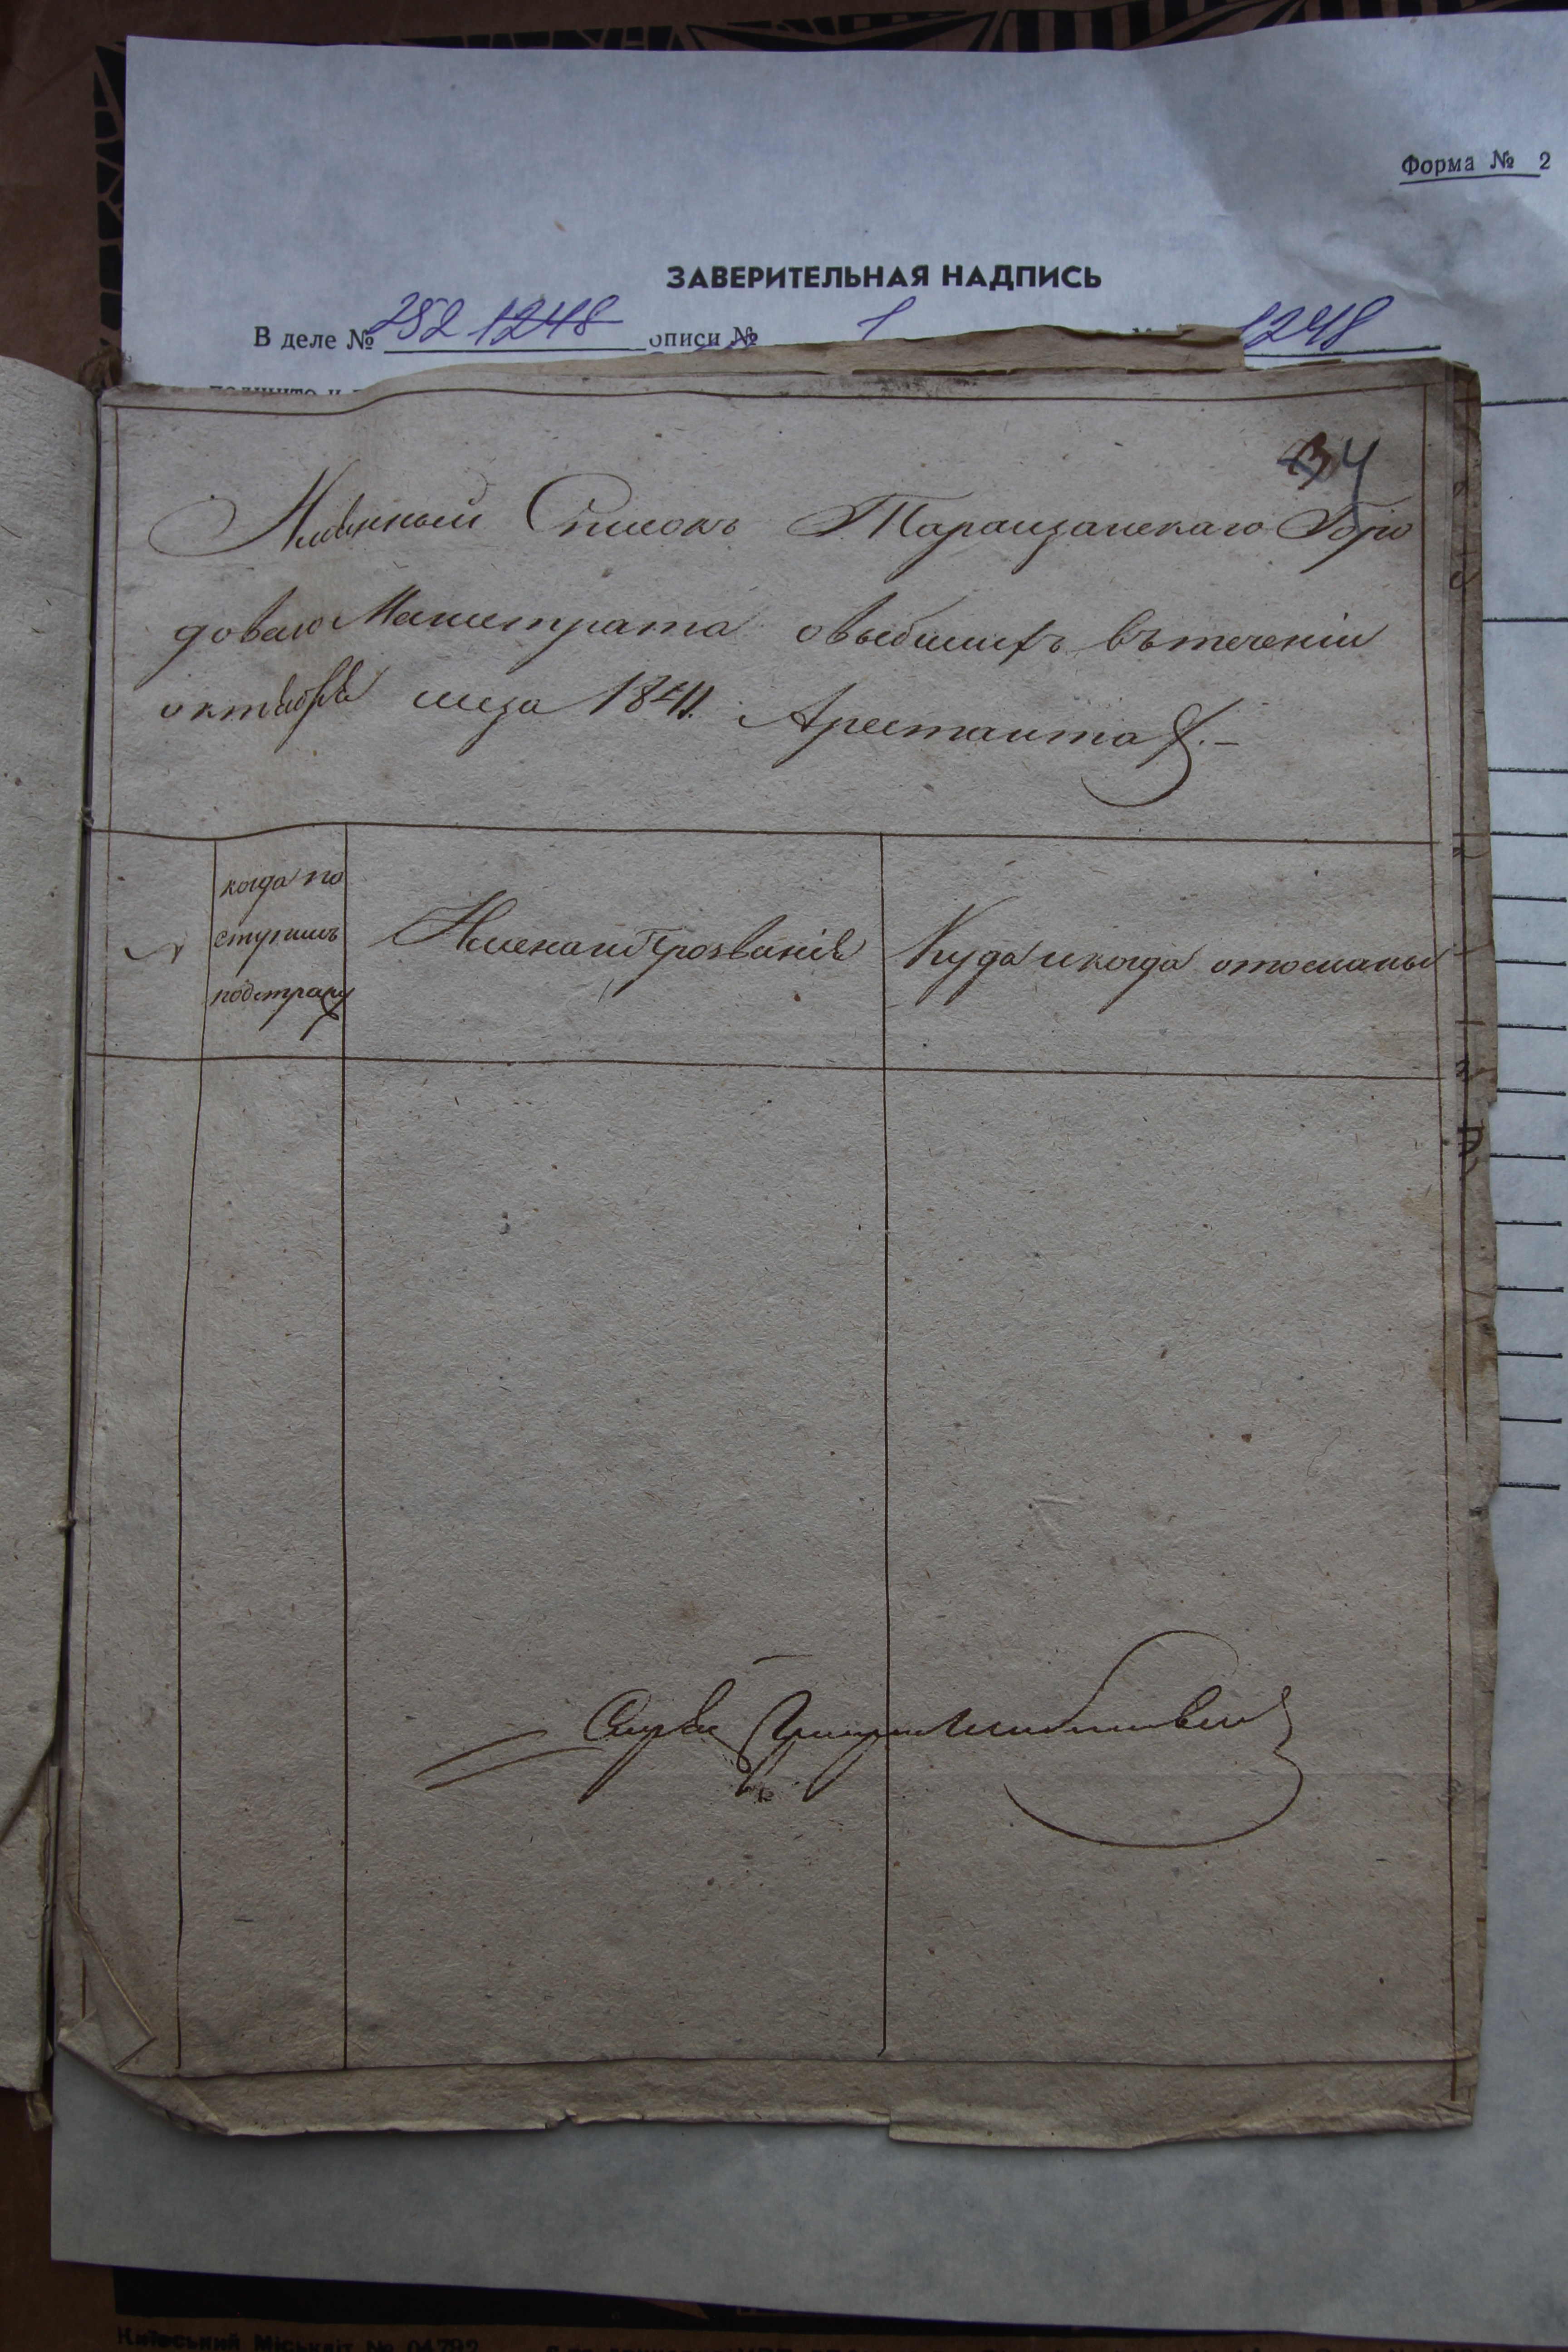 Форма № 2
ЗАВЕРИТЕЛЬНАЯ НАДПИСЬ
В деле № 252 1248 описи № 1 1248
34
Имянный Списокъ Таращанскаго Горо
доваго Магистрата овыбшихъ втеченіи
октября мца 1841. Арестантах.-
когда по
ступилъ
подстражу
Имена и Прозванія
Куда и когда отосланы
Київський Міськліт № 04792